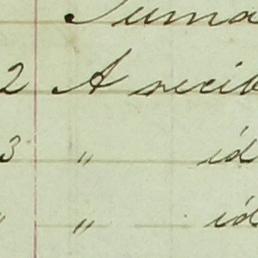 Suma
2 A recib
3 " id
" " id